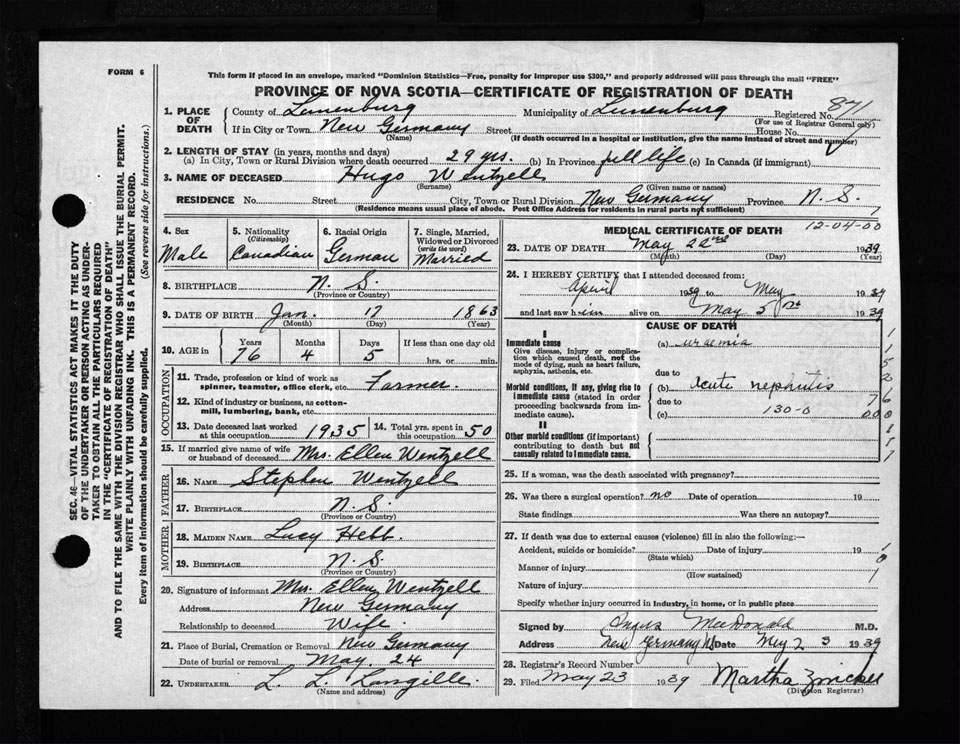 FORM 6
This form if placed in an envelope, marked "Dominion Statistics—Free, penalty for improper use $300," and properly addressed will pass through the mail "FREE"
PROVINCE OF NOVA SCOTIA—CERTIFICATE OF REGISTRATION OF DEATH
1. PLACE OF DEATH
County of Lunenburg Municipality of Lunenburg Registered No. 871
(For use of Registrar General only)
If in City or Town New Germany Street House No.
(Name) (If death occurred in a hospital or institution, give the name instead of street and number)
2. LENGTH OF STAY (in years, months and days)
(a) In City, Town or Rural Division where death occurred 29 yrs. (b) In Province full life (c) In Canada (if immigrant)
3. NAME OF DECEASED Hugo Wentzell
(Surname) (Given name or names)
RESIDENCE No. Street City, Town or Rural Division New Germany Province N. S.
(Residence means usual place of abode. Post Office Address for residents in rural parts not sufficient)
4. Sex Male
5. Nationality (Citizenship) Canadian
6. Racial Origin German
7. Single, Married, Widowed or Divorced (write the word) Married
8. BIRTHPLACE N. S.
(Province or Country)
9. DATE OF BIRTH Jan. 17 1863
(Month) (Day) (Year)
10. AGE in Years Months Days If less than one day old
76 4 5 hrs. or min.
OCCUPATION
11. Trade, profession or kind of work as spinner, teamster, office clerk, etc. Farmer.
12. Kind of industry or business, as cotton-mill, lumbering, bank, etc.
13. Date deceased last worked at this occupation 1935
14. Total yrs. spent in this occupation 50
15. If married give name of wife or husband of deceased Mrs. Ellen Wentzell
FATHER
16. NAME Stephen Wentzell
17. BIRTHPLACE N. S.
(Province or Country)
MOTHER
18. MAIDEN NAME Lucy Hebb.
19. BIRTHPLACE N. S.
(Province or Country)
20. Signature of informant Mrs. Ellen Wentzell
Address New Germany
Relationship to deceased Wife.
21. Place of Burial, Cremation or Removal New Germany
Date of burial or removal May. 24
22. UNDERTAKER L. L. Langille.
(Name and address)
MEDICAL CERTIFICATE OF DEATH 12-04-00
23. DATE OF DEATH May 22nd 1939
(Month) (Day) (Year)
24. I HEREBY CERTIFY that I attended deceased from:
April 1939 to May 1939
and last saw him alive on May 5 1939
CAUSE OF DEATH
I
Immediate cause
Give disease, injury or complication which caused death, not the mode of dying, such as heart failure, asphyxia, asthenia, etc.
(a) uraemia
due to
Morbid conditions, if any, giving rise to immediate cause (stated in order proceeding backwards from immediate cause).
(b) acute nephritis
due to
(c) 130-0
II
Other morbid conditions (if important) contributing to death but not causally related to immediate cause.
25. If a woman, was the death associated with pregnancy?
26. Was there a surgical operation? no Date of operation 19
State findings Was there an autopsy?
27. If death was due to external causes (violence) fill in also the following:—
Accident, suicide or homicide? Date of injury 19
(State which)
Manner of injury
(How sustained)
Nature of injury
Specify whether injury occurred in industry, in home, or in public place
Signed by Angus MacDonald M.D.
Address New Germany NS Date May 23 1939
28. Registrar's Record Number
29. Filed May 23 1939 Martha
(Division Registrar)
SEC. 46—VITAL STATISTICS ACT MAKES IT THE DUTY
OF THE UNDERTAKER OR PERSON ACTING AS UNDERTAKER TO OBTAIN ALL THE PARTICULARS REQUIRED
IN THE "CERTIFICATE OF REGISTRATION OF DEATH"
AND TO FILE THE SAME WITH THE DIVISION REGISTRAR WHO SHALL ISSUE THE BURIAL PERMIT.
WRITE PLAINLY WITH UNFADING INK. THIS IS A PERMANENT RECORD.
Every item of information should be carefully supplied. (See reverse side for instructions.)